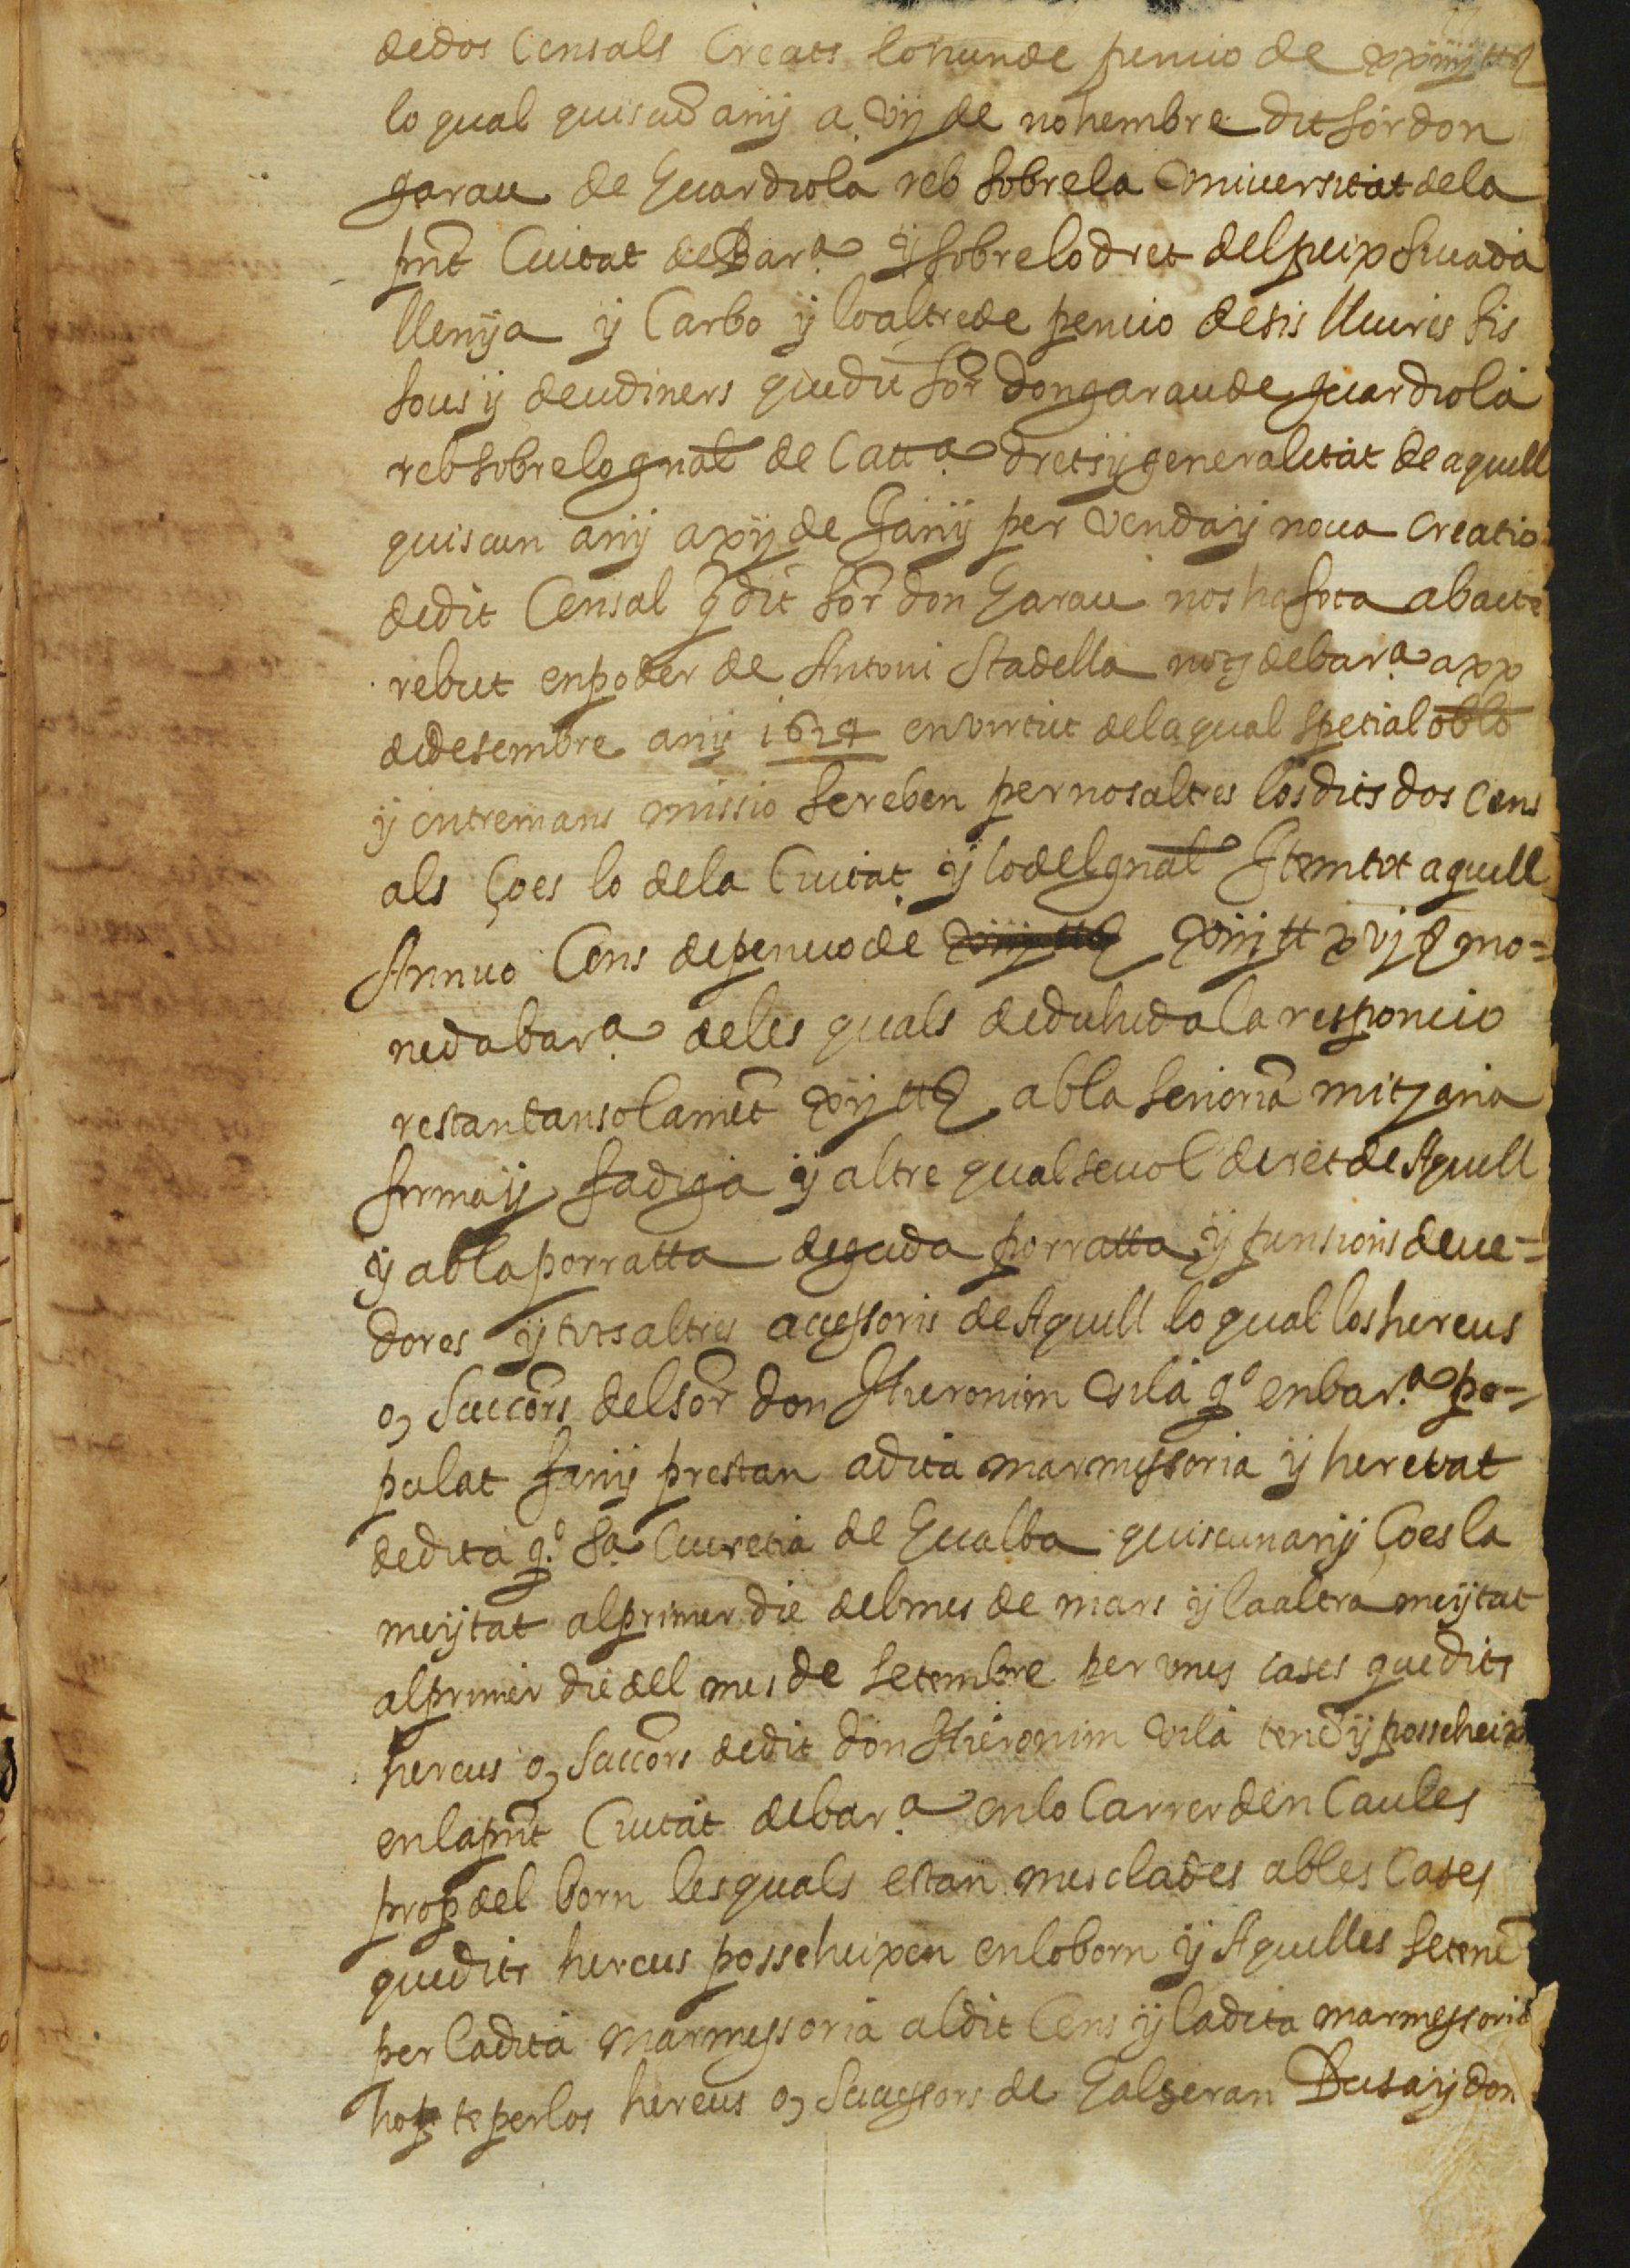 de dos Censals Creats lo hu nde pencio de xxiiij ll
lo qual quiscũ anÿ a vij de nohembre dit Sor don
garau de Guardiola reb sobre la Vniuersitat dela
pñt Ciutat de Barª ÿ sobre lo dret del peix siuada
llenÿa ÿ Carbo ÿ lo altre de pencio de sis lliures sis
sous ÿ deu diners que dit Sor don garau de guardiola
reb sobre lo gñal de Cattª drets ÿ generalitat de aquell
quiscun anÿ a xij de Janÿ per venda ÿ noua Creatio
de dit Censal q̃ dit Sor don Garau nos ha fota ab acte
rebut en poder de Antoni Stadella notj de barª a xx
de desembre anÿ 1624 en virtut dela qual spetial oblo
ÿ entremans missio se reben per nosaltres los dits dos Cens
als Çoes lo dela Ciutat ÿ lo del gñal Item tot aquell
Annuo Cens de pencio de xviij ll xvj s mo-
neda barª deles quals deduhida la responcio
restan tansolamẽt xij ll s ab la senioria mitzana
firma ÿ fadiga ÿ altre qualseuol dret de Aquell
ÿ ab la porratta deguda porratta ÿ punsions deue-
dores ÿ tots altres accessoris de Aquell lo qual los hereus
o, Succors del Sor don Hieronim Vila qº en barª po-
pulat fanÿ prestan a dita marmessoria ÿ heretat
de dita qº Sª Lucretia de Gualba quiscun anÿ Çoes la
meÿtat al primer die del mes de mars ÿ la altra meÿtat
al primer die del mes de setembre per vnes cases que dits
hereus o, Succors de dit don Hieronim Vila tenẽ ÿ possehei
en la pñt Ciutat de barª en lo Carrer den Caules
prop del born les quals estan mesclades ab les Cases
que dits hereus possehuixen en lo born ÿ Aquelles se tenẽ
per la dita marmessoria al dit Cens ÿ la dita marmessoria
ho te per los hereus o, Sucessors de Galseran Dusaÿ don